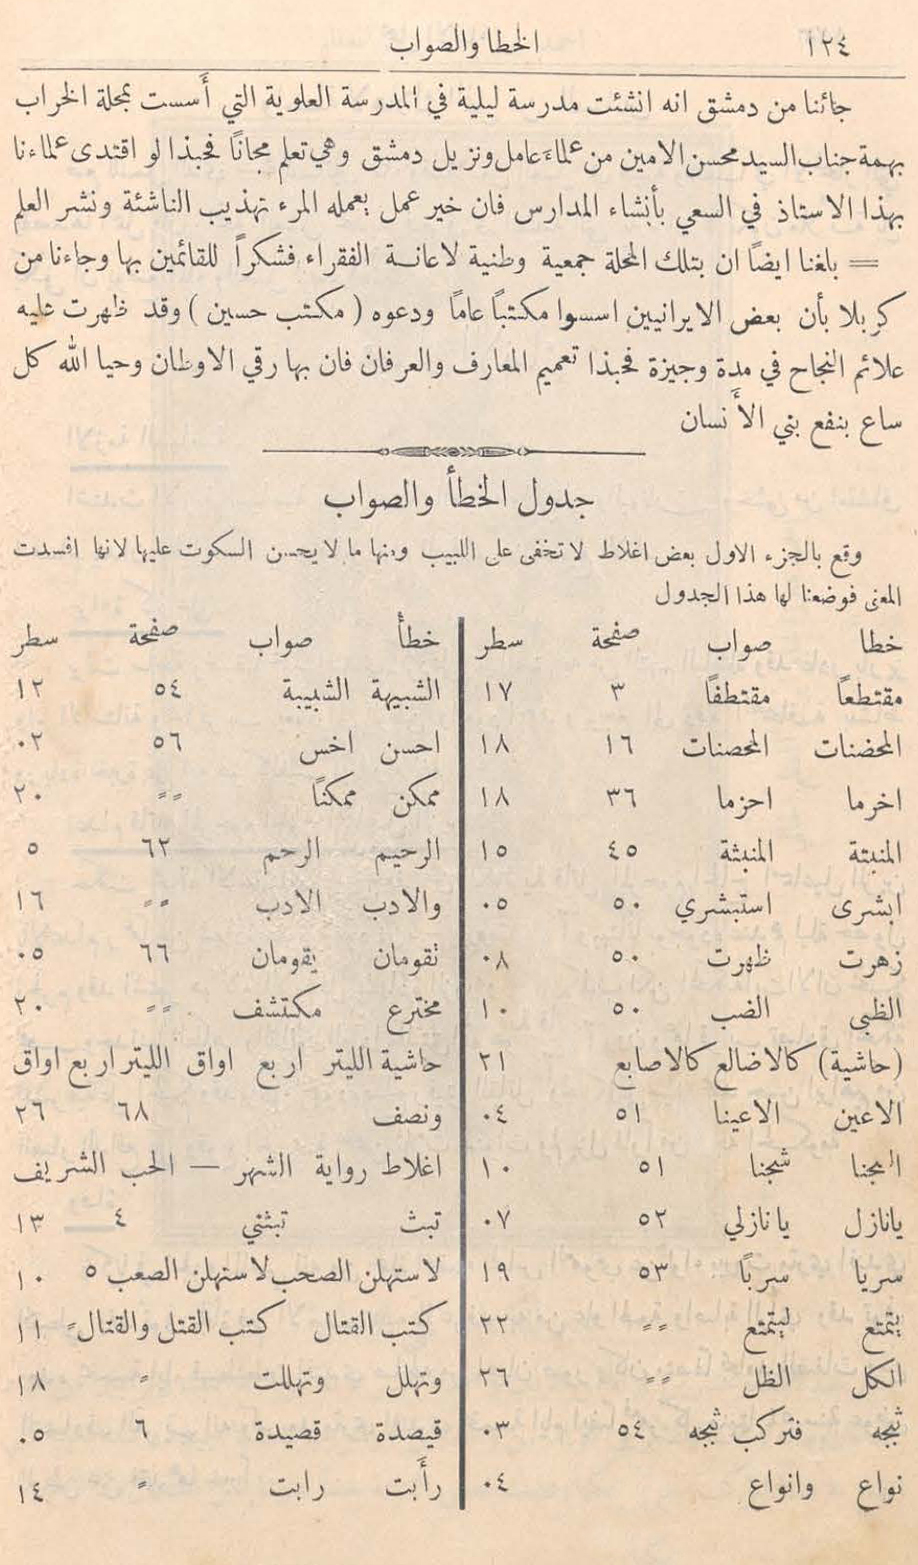 ١٢٤ الخطا والصواب
جائنا من دمشق انه انشئت مدرسة ليلية في المدرسة العلوية التي أَسست بمحلة الخراب
بهمة جناب السيد محسن الامين من علماء عامل ونزيل دمشق وهي تعلم مجاناً فحبذا لو اقتدى علماءنا
بهذا الاستاذ في السعي بأنشاء المدارس فان خير عمل يعمله المرء تهذيب الناشئة ونشر العلم
= بلغنا ايضاً ان بتلك المحلة جمعية وطنية لاعانة الفقراء فشكراً للقائمين بها وجاءنا من
كربلا بأن بعض الايرانيين اسسوا مكتباً عاماً ودعوه ( مكتب حسين ) وقد ظهرت عليه
علائم النجاح في مدة وجيزة فحبذا تعميم المعارف والعرفان فان بها رقي الاوطان وحيا الله كل
ساع بنفع بني الأَنسان
جدول الخطأ والصواب
وقع بالجزء الاول بعض اغلاط لا تخفى على اللبيب ومنها ما لا يحسن السكوت عليها لانها افسدت
المعنى فوضعنا لها هذا الجدول
خطا صواب صفحة سطر
مقتطعاً مقتطفاً ٣ ١٧
المحضنات المحصنات ١٦ ١٨
اخرما احزما ٣٦ ١٨
المنبتة المنبثة ٤٥ ١٥
ابشرى استبشري ٥٠ ٠٥
زهرت ظهرت ٥٠ ٠٨
الظبي الضب ٥٠ ١٠
(حاشية) كالاضالع كالاصابع ٢١
الاعين الاعينا ٥١ ٠٤
المجنا شجنا ٥١ ١٠
يانازل يا نازلي ٥٢ ٠٧
سريا سربًا ٥٣ ١٩
يتمتع ليتمتع ״ ٢٢
الكل الظل ״ ٢٦
ثبجه فتركب ثبجه ٥٤ ٠٣
نواع وانواع ٠٤
خطأ صواب صفحة سطر
الشبيهة الشبيبة ٥٤ ١٢
احسن اخس ٥٦ ٠٢
ممكن ممكناً ״ ٢٠
الرحيم الرحم ٦٢ ٥
والادب الادب ״ ١٦
تقومان يقومان ٦٦ ٠٥
مخترع مكتشف ״ ٢٠
حاشية الليتر اربع اواق الليتر اربع اواق
ونصف ٦٨ ٢٦
اغلاط رواية الشهر — الحب الشريف
تبث تبثني ٤ ١٣
لاستهلن الصحب لاستهلن الصعب ٥ ١٠
كتب القتال كتب القتل والقتال ״ ١١
وتهلل وتهللت ״ ١٨
قيصدة قصيدة ٦ ٠٥
رأَبت رابت ״ ١٤